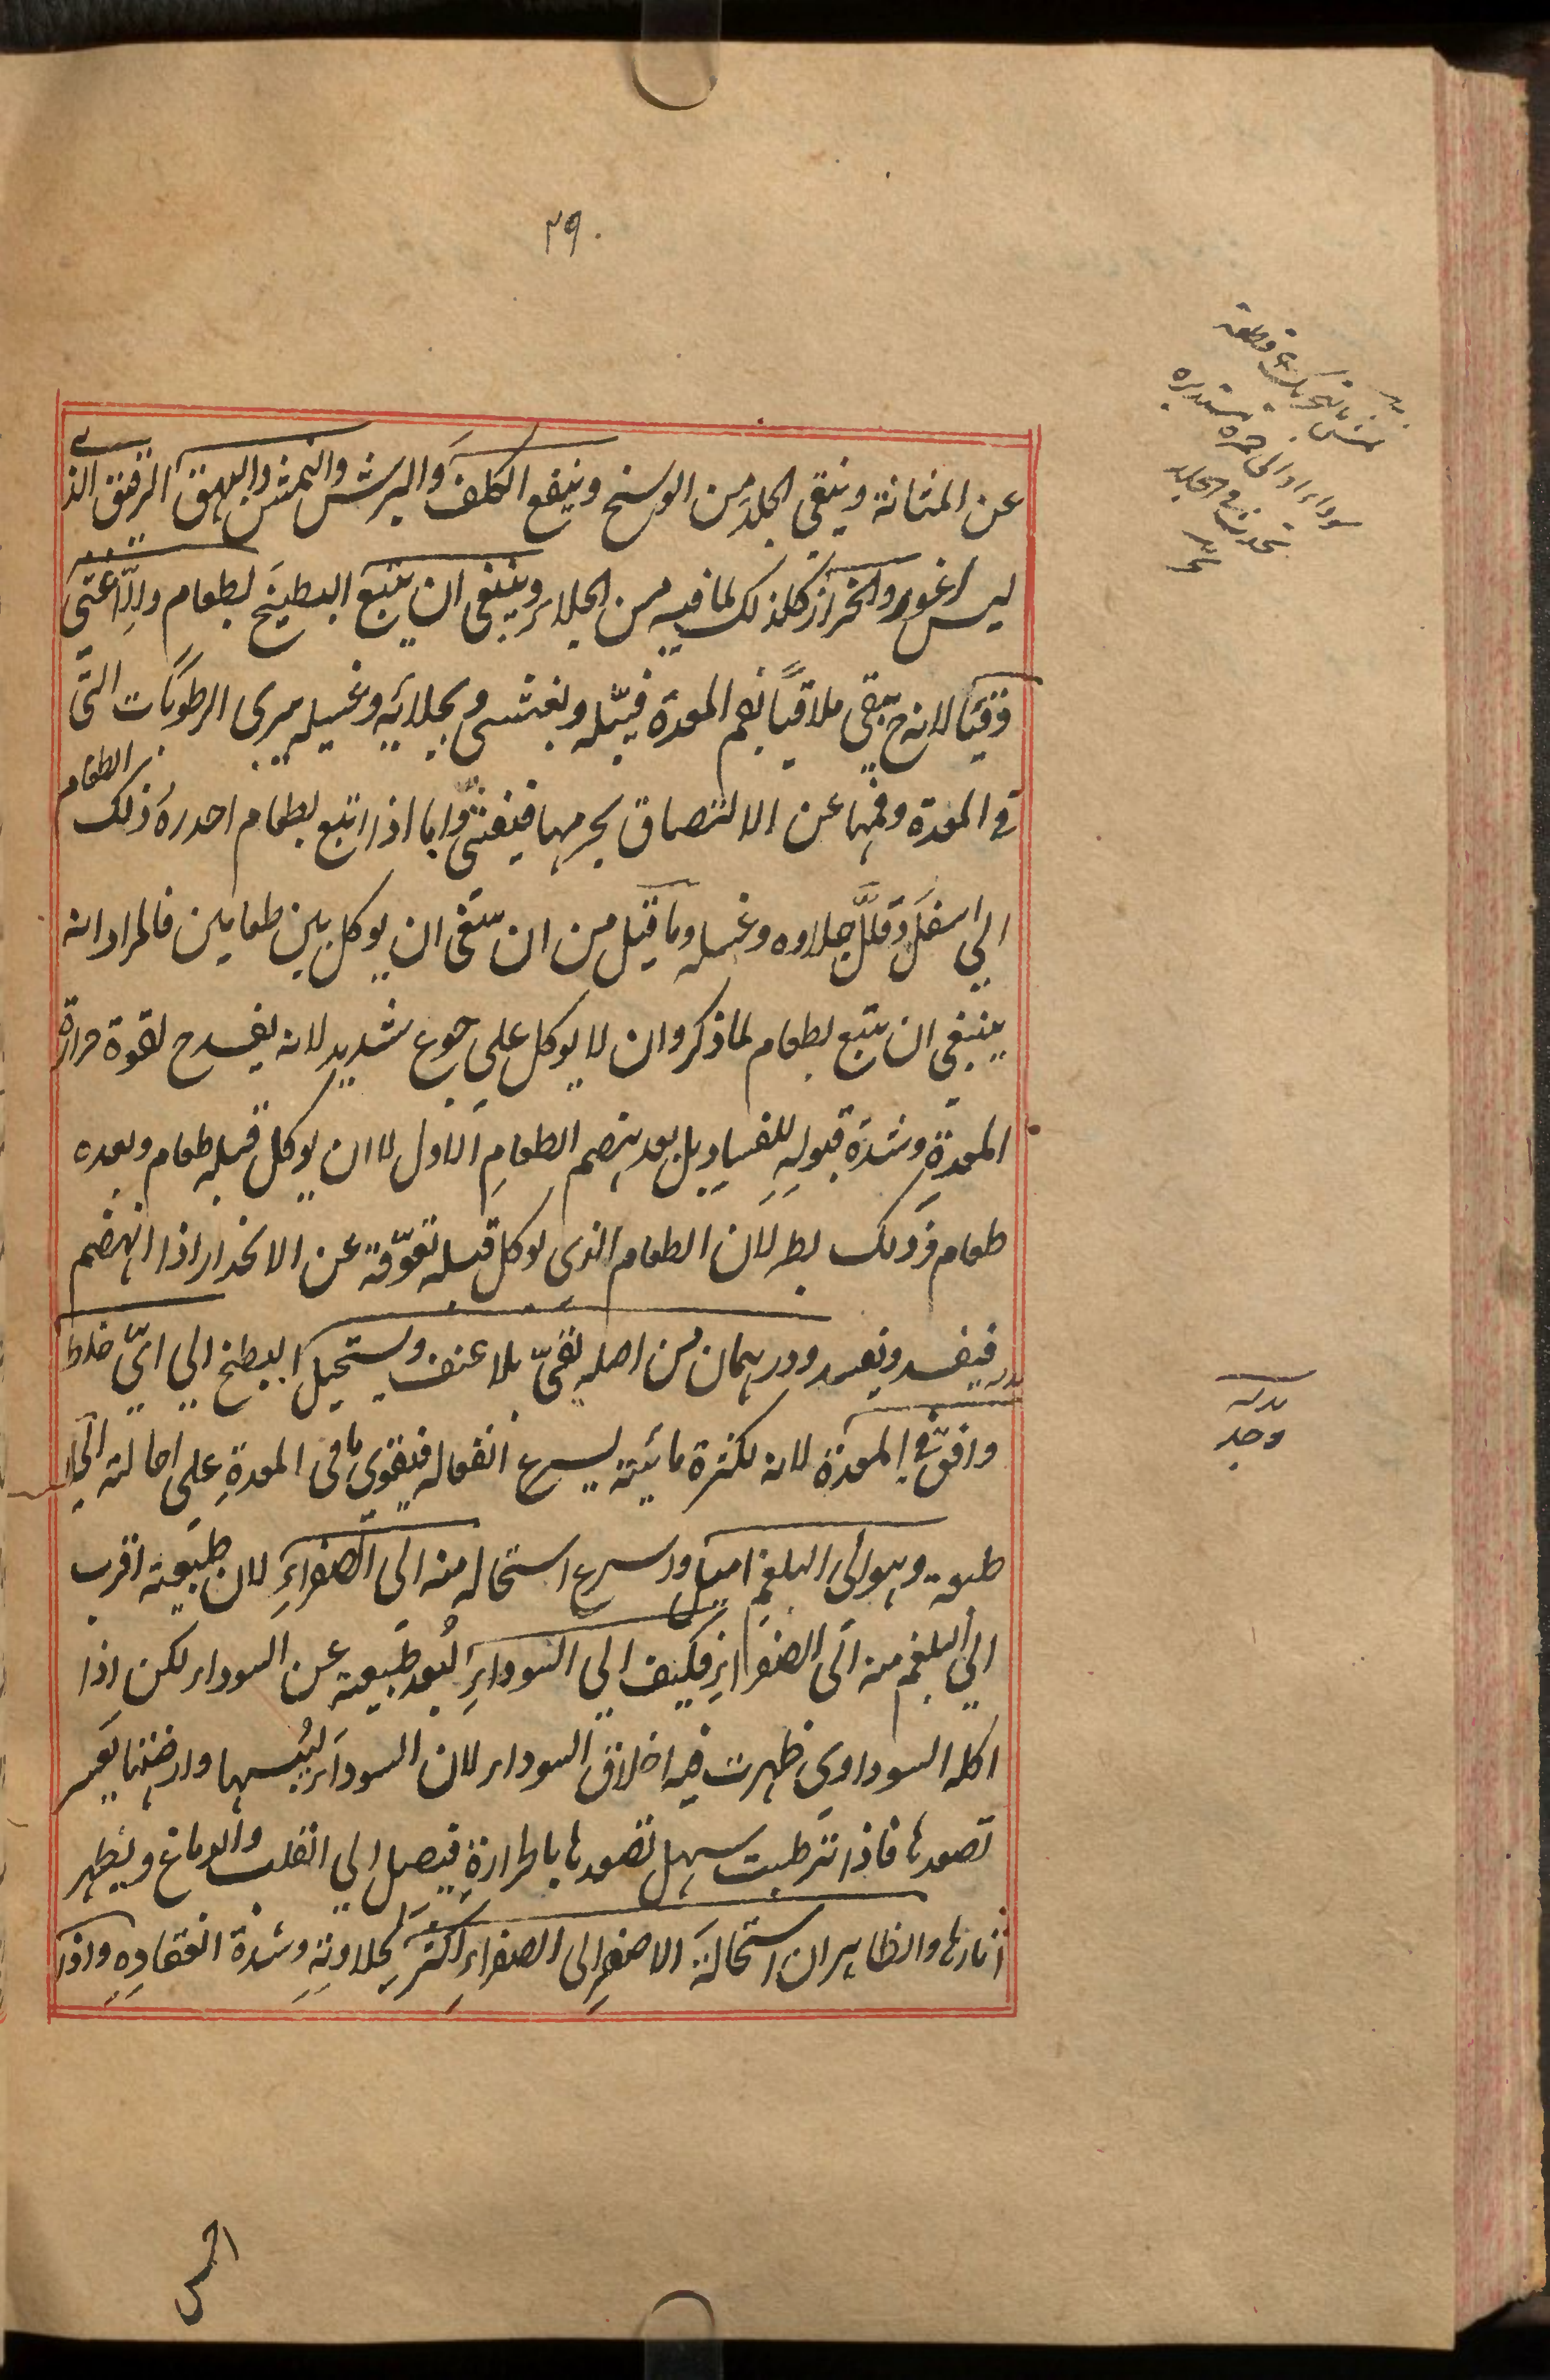 ۲۹۰
عن المثانة وينقى الجلد من الوسخ وينفع الكلف والبرش والنمش والبهق الرقيق الذى
ليس لغور والخراز كلذلك لما فيه من الجلاء وينبغى ان يتبع البطيخ لطعام والا غثى
وقيا لانه ح يبقى ملاقيا لفم المعدة فيبله ويغثى وبجلائه وغسله يبرى الرطوبات التى
فى المعدة وفمها عن الالتصاق بجرمها فيغثى واما اذا اتبع بطعام احدره ذلك الطعام
الى اسفل وقلل جلاوه وغسله وما قيل من ان ينبغى ان يوكل بين طعامين فالمراد انه
ينبغى ان يتبع بطعام لما ذكر وان لا يوكل على جوع شديد لانه يفسد ح لقوة حرارة
المعدة وشدة قبوله للفساد بل بعد هضم الطعام الاول لا ان يوكل قبله طعام وبعده
طعام فذلك لان الطعام الذى يوكل قبله تعوقه عن الانحدار اذا انهضم
فيفسد ويفسد ودرهمان من اصله يقىّ بلا عنف ويستحيل البطيخ الى اىّ خلط
وافق فى المعدة لانه لكثرة مائيته يسرع انفعاله فيقوى ما فى المعدة على احالته الى
طبعه وهو الى البلغم اميل واسرع استحاله منه الى الصفراء لان طبيعته اقرب
الى البلغم منه الى الصفراء فكيف الى السوداء لبعد طبيعته عن السوداء لكن اذا
اكله السوداوى ظهرت فيه اخلاق السوداء لان السوداء ليبسها وارضيتها يعسر
تصعدها فاذا ترطبت سهل تصعدها بالحرارة فيصل الى القلب والدماغ ويظهر
اثارها والظاهر ان استحالة الاصفر الى الصفراء اكثر لحلاوته وشدة انعقاده واذا
نمش بالتحريك نقطة
سوداء او الى حمرة مستديرة
تحدث فى الجلد
وجد